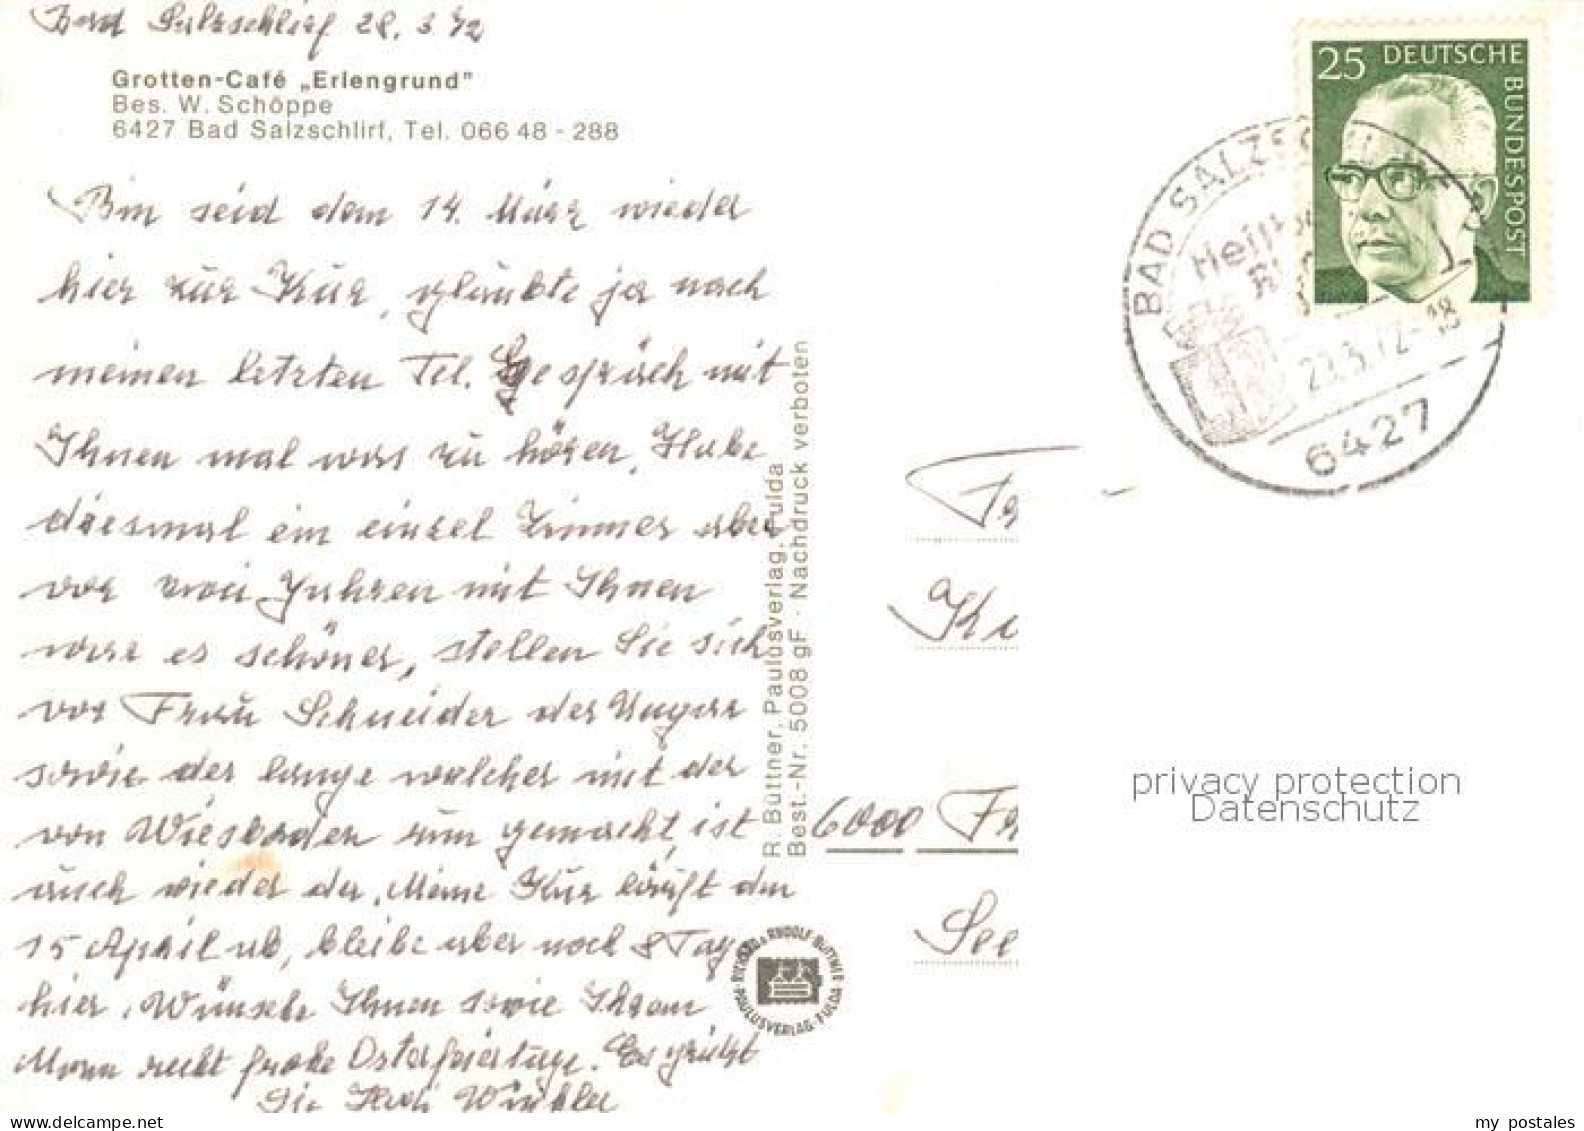 Bad Salzschlirf 28. 3. 72
Grotten-Café „Erlengrund”
Bes. W. Schöppe
6427 Bad Salzschlirf, Tel. 066 48 - 288
Bin seid dem 14. März wieder
hier zur Kur, glaubte ja nach
meinen letzten Tel. Gespräch mit
Ihnen mal was zu hören. Habe
diesmal ein einzel Zimmer aber
vor zwei Jahren mit Ihnen
war es schöner, stellen Sie sich
vor Frau Schneider der Ungar
sowie der lange welcher mit der
von Wiesbaden rum gemacht, ist
auch wieder da. Meine Kur läuft den
15 April ab, bleibe aber noch 8 Tage
hier. Wünsche Ihnen sowie Ihrem
Mann recht frohe Osterfeiertage. Es grüßt
Sie Winkler
R. Büttner, Paulosverlag, Fulda
Best.-Nr. 5008 gF · Nachdruck verboten
RICHARD & RUDOLF BÜTTNER
PAULUSVERLAG, FULDA
25 DEUTSCHE
BUNDESPOST
BAD SALZSC
Heil
29.3.72-18
6427
6000 Fr
See
privacy protection
Datenschutz
delcampe.net
my postales